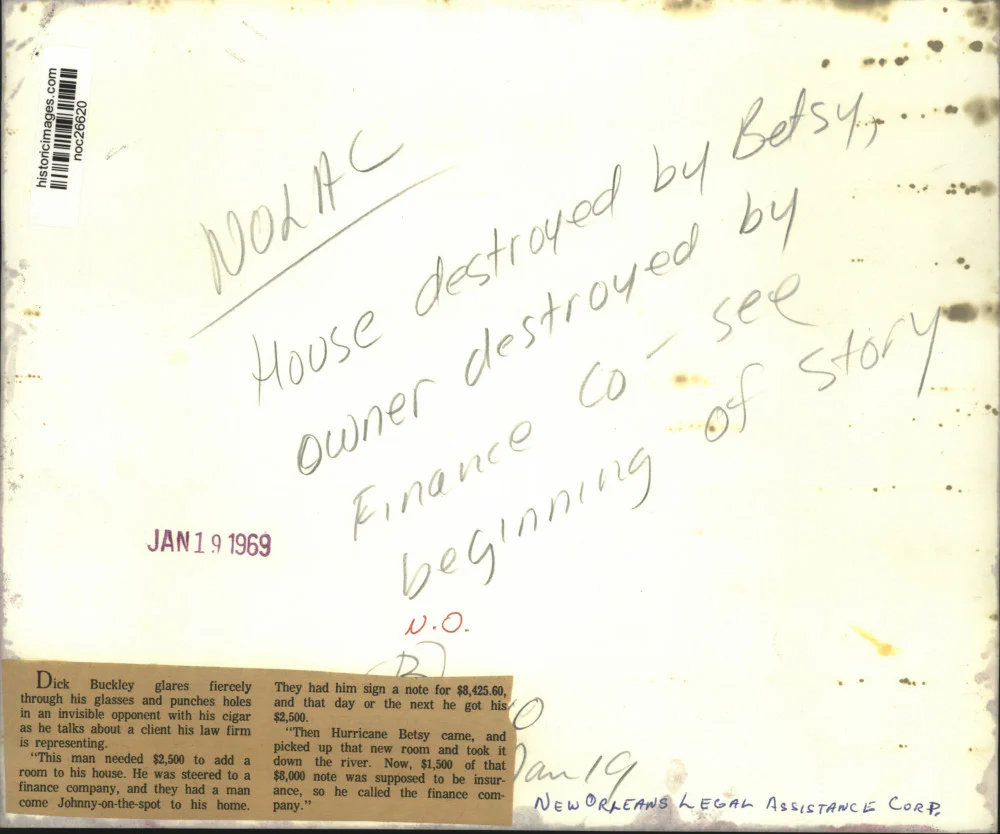 historicimages.com
noc26620
NOLAC
House destroyed by Betsy,
owner destroyed by
Finance Co - see
beginning of Story
JAN 19 1969
N.O.
B
Dick Buckley glares fiercely
through his glasses and punches holes
in an invisible opponent with his cigar
as he talks about a client his law firm
is representing.
"This man needed $2,500 to add a
room to his house. He was steered to a
finance company, and they had a man
come Johnny-on-the-spot to his home.
They had him sign a note for $8,425.60,
and that day or the next he got his
$2,500.
"Then Hurricane Betsy came, and
picked up that new room and took it
down the river. Now, $1,500 of that
$8,000 note was supposed to be insur-
ance, so he called the finance com-
pany."
Jan 19
NEW ORLEANS LEGAL ASSISTANCE CORP.